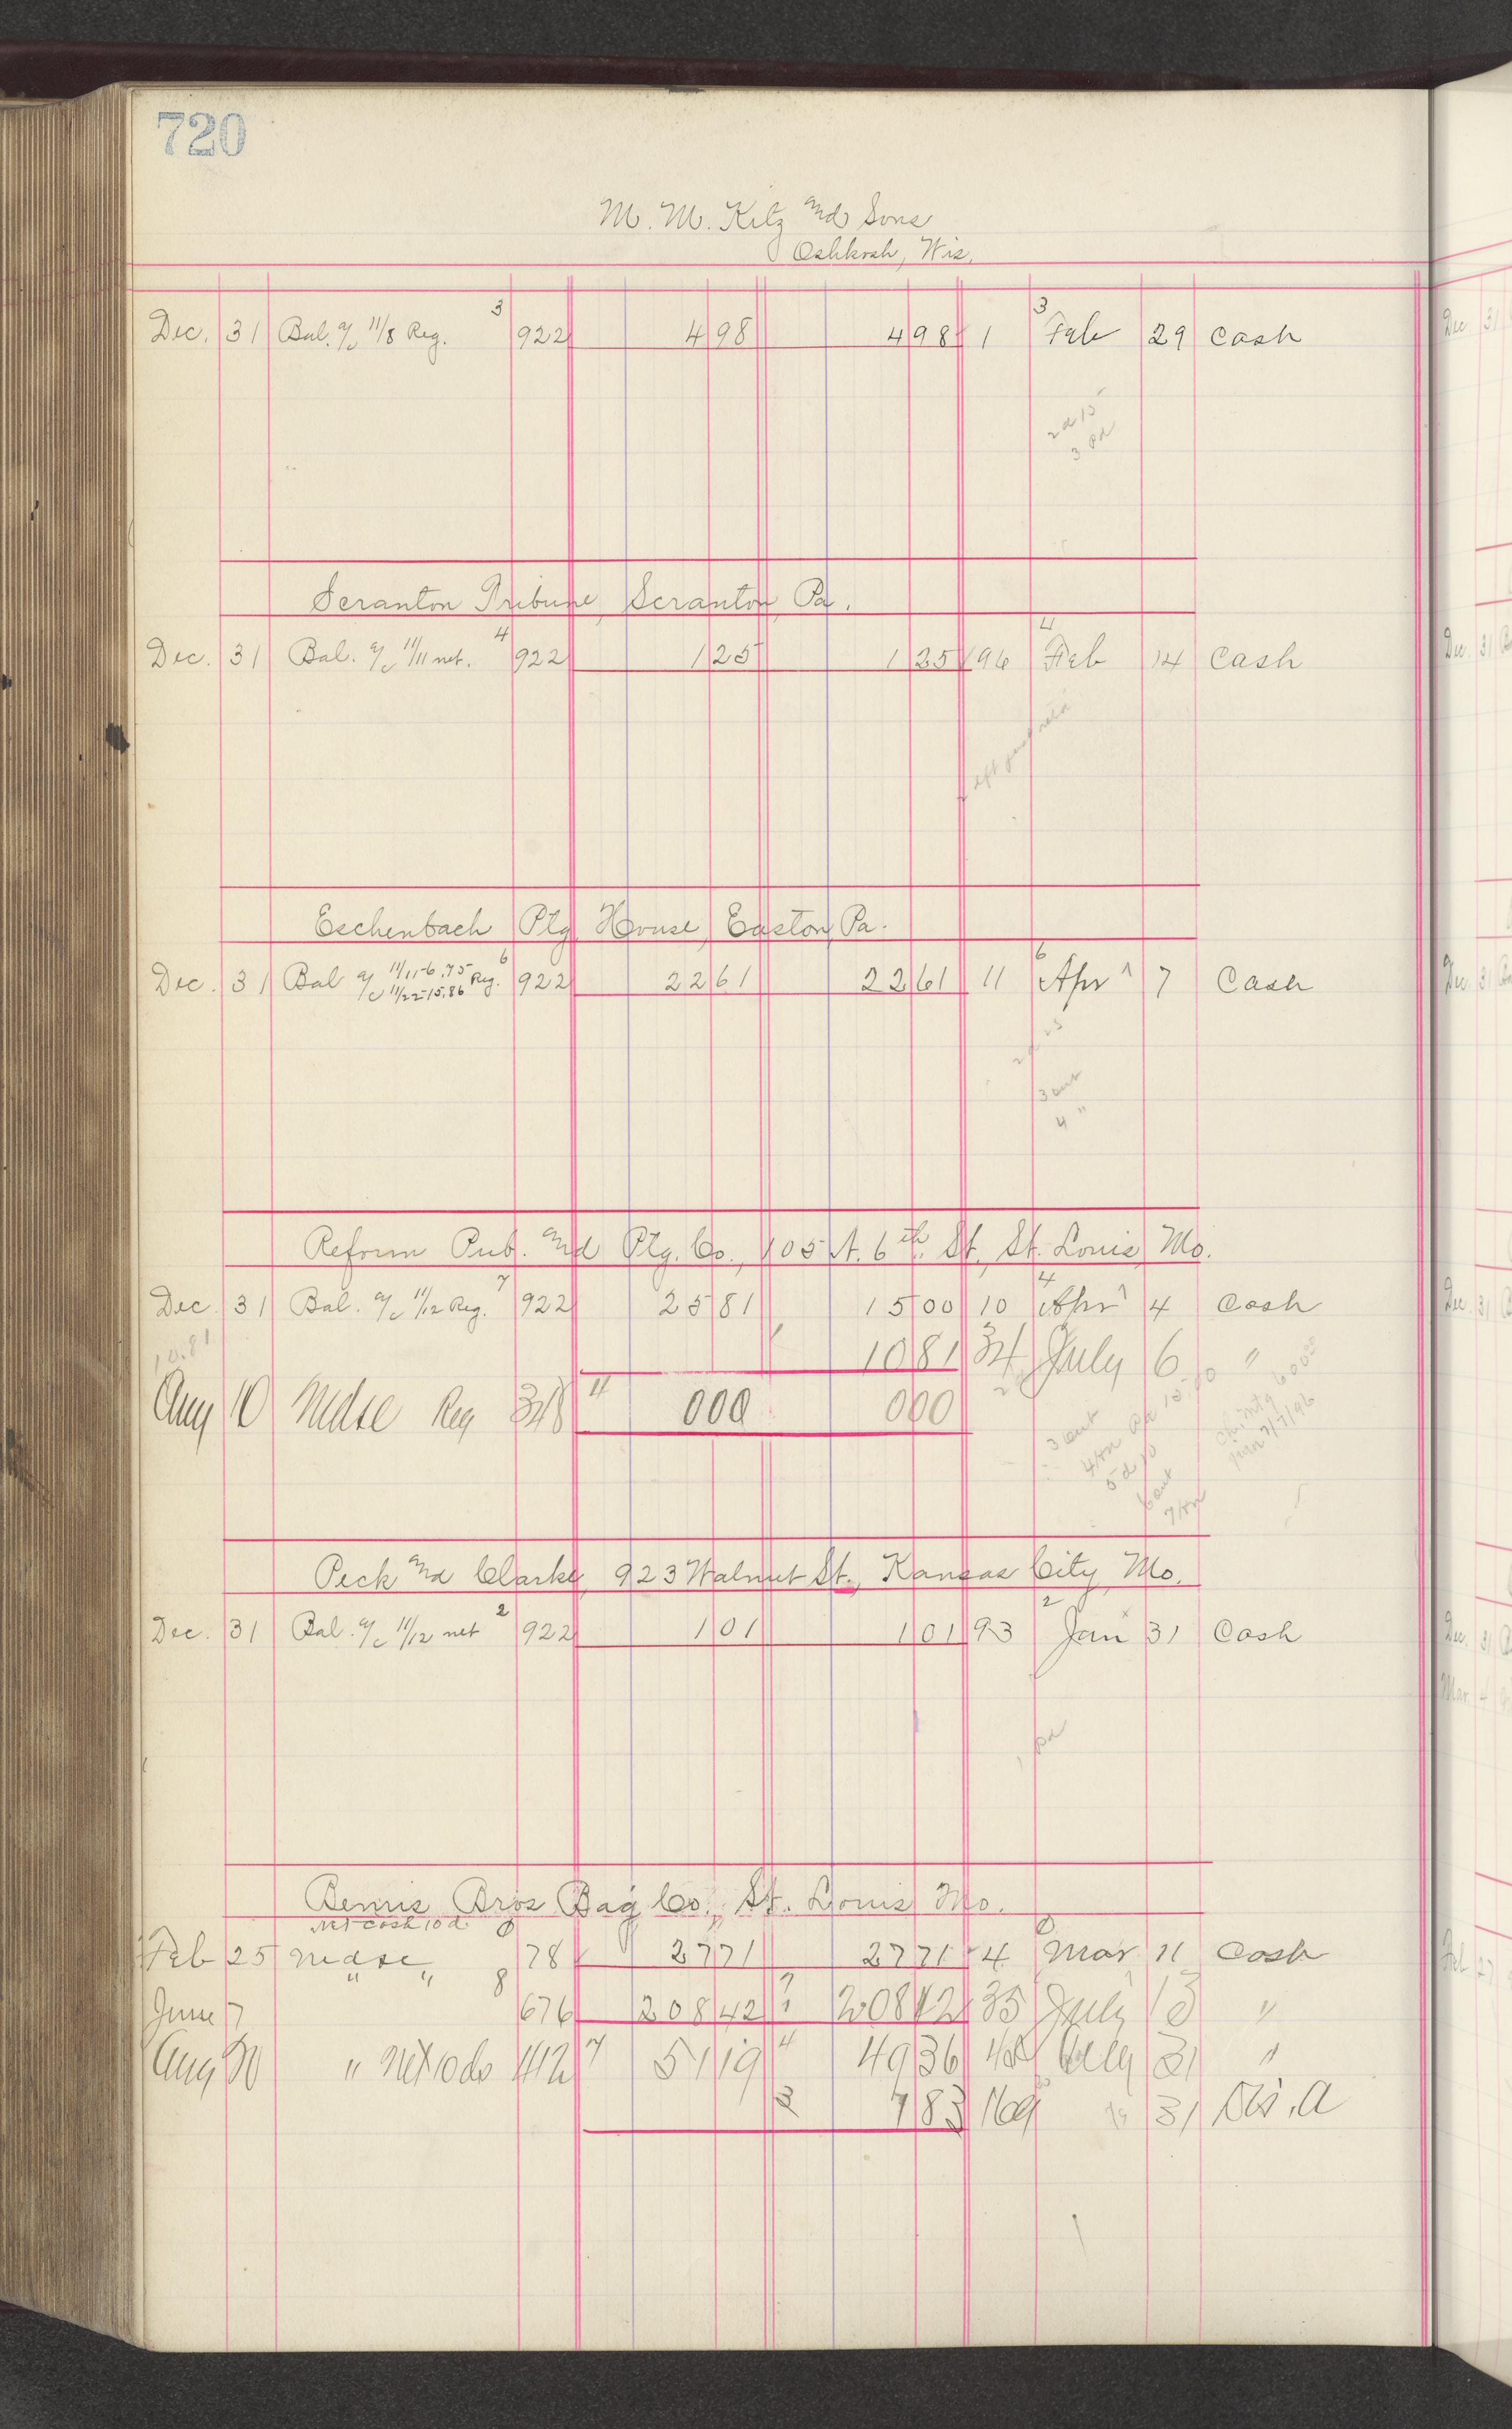 720
M. M. Kitz and Sons
Oshkosh, Wis.
Dec. 31 Bal. a/c 11/8 Reg. 3 922 4 98 4 98 1 3 Feb 29 Cash
2 d 15
3 pd
Scranton Tribune, Scranton, Pa.
Dec. 31 Bal. a/c 11/11 net. 4 922 1 25 1 25 96 4 Feb 14 Cash
Eschenbach Ptg. House, Easton, Pa.
Dec. 31 Bal a/c 11/11-6.75 11/22-15.86 Reg. 6 922 22 61 22 61 11 6 Apr 7 Cash
3 ent
4 "
Reform Pub. and Ptg. Co., 105 N. 6th. St., St. Louis, Mo.
Dec. 31 Bal. a/c 11/12 Reg. 7 922 25 81 15 00 10 4 Apr 4 Cash
10.81 10 81 34 July 6 "
Aug 10 Mdse Reg 348 11 000 000
3 ent
5 d 10
6 ent
Peck and Clarke, 923 Walnut St., Kansas City, Mo.
Dec. 31 Bal. a/c 11/12 net 2 922 1 01 1 01 93 2 Jan 31 Cash
pd
Bemis Bros Bag Co., St. Louis, Mo.
Net cash 10 d.
Feb 25 Mdse 78 27 71 27 71 4 Mar 11 Cash
June 7 " " 8 676 208 42 208 42 35 July 13 "
Aug 30 " Net 10 ds 412 7 51 19 4 49 36 Aug 31 "
3 1 83 169 31 Dis. A